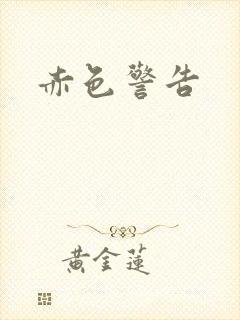 赤色警告
黄金蓮